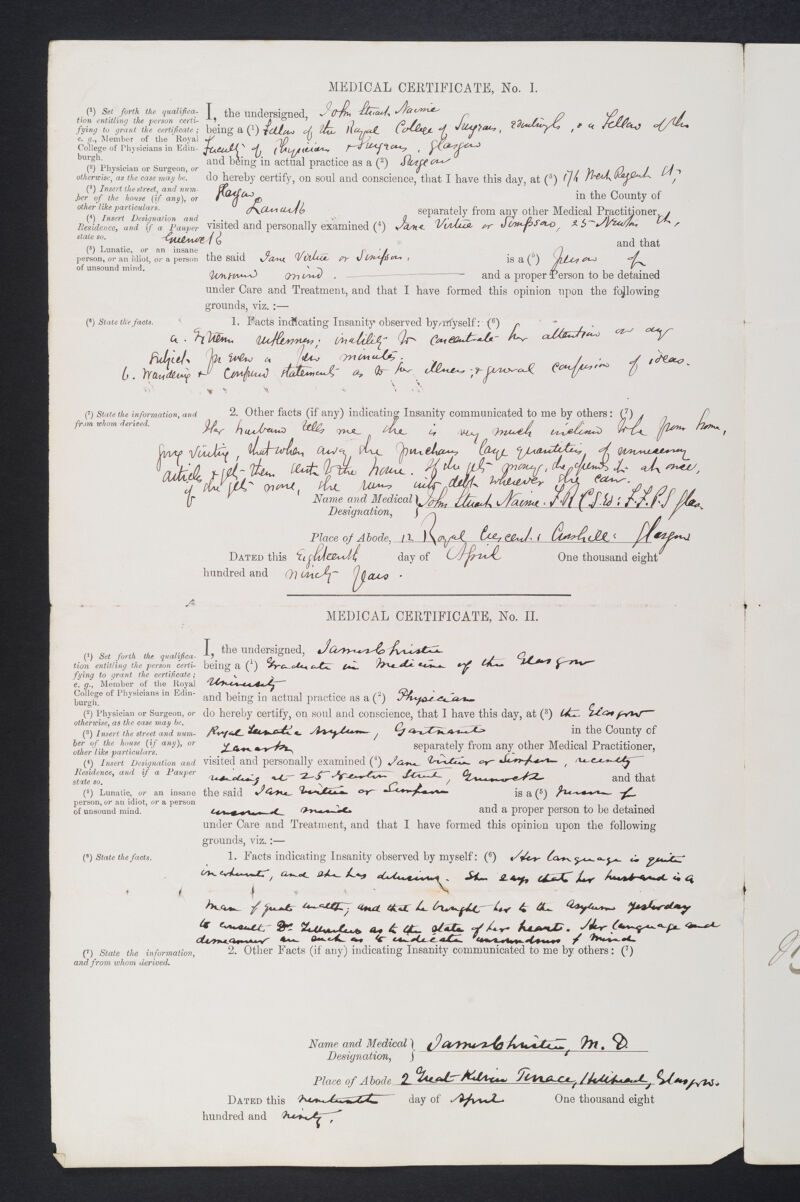 MEDICAL CERTIFICATE, No. I.
(1) Set forth the qualifica-
tion entitling the person certi-
fying to grant the certificate;
e. g., Member of the Royal
College of Physicians in Edin-
burgh.
(2) Physician or Surgeon, or
otherwise, as the case may be.
(3) Insert the street, and num-
ber of the house (if any), or
other like particulars.
(4) Insert Designation and
Residence, and if a Pauper
state so.
(5) Lunatic, or an insane
person, or an idiot, or a person
of unsound mind.
I, the undersigned, John Stuart Nairne
being a (1) Fellow of the Royal College of Surgeons, Edinburgh, & a Fellow of the
Faculty of Physicians & Surgeons, Glasgow
and being in actual practice as a (2) Surgeon
do hereby certify, on soul and conscience, that I have this day, at (3) 176 West Regent St,
Glasgow in the County of
Lanark separately from any other Medical Practitioner,
visited and personally examined (4) Jane Virtue or Simpson, 25 Newton St,
Greenock and that
the said Jane Virtue or Simpson, is a (5) person of
unsound mind. and a proper Person to be detained
under Care and Treatment, and that I have formed this opinion upon the following
grounds, viz. :—
(6) State the facts.
1. Facts indicating Insanity observed by myself: (6)
a. Extreme restlessness; inability to concentrate her attention on any
subject for even a few minutes.
b. Wandering & confused statements as to her illness; & general confusion of ideas.
(7) State the information, and
from whom derived.
2. Other facts (if any) indicating Insanity communicated to me by others: (7)
Her husband tells me she is very much inclined to be from home,
going visiting, that when away she purchases large quantities of unnecessary
articles & gets them sent to the house. If she gets money, she spends it at once,
if she gets none, she runs into debt wherever she can.
Name and Medical Designation, John Stuart Nairne. F.R.C.S. Ed: F.F.P.S Glas.
Place of Abode, 12 Royal Crescent, Crosshill, Glasgow
DATED this Eighteenth day of April One thousand eight
hundred and ninety years.
MEDICAL CERTIFICATE, No. II.
(1) Set forth the qualifica-
tion entitling the person certi-
fying to grant the certificate;
e. g., Member of the Royal
College of Physicians in Edin-
burgh.
(2) Physician or Surgeon, or
otherwise, as the case may be.
(3) Insert the street and num-
ber of the house (if any), or
other like particulars.
(4) Insert Designation and
Residence, and if a Pauper
state so.
(5) Lunatic, or an insane
person, or an idiot, or a person
of unsound mind.
I, the undersigned, James Christie
being a (1) Graduate in Medicine of the Glasgow
University
and being in actual practice as a (2) Physician
do hereby certify, on soul and conscience, that I have this day, at (3) the Glasgow
Royal Lunatic Asylum, Gartnavel in the County of
Lanark separately from any other Medical Practitioner,
visited and personally examined (4) Jane Virtue or Simpson, recently
residing at 25 Newton Street, Greenock and that
the said Jane Virtue or Simpson is a (5) Person of
unsound mind and a proper person to be detained
under Care and Treatment, and that I have formed this opinion upon the following
grounds, viz. :—
(6) State the facts.
1. Facts indicating Insanity observed by myself: (6) Her language is quite
incoherent, and she has delusions. She says that her husband is a
man of great wealth; and that he brought her to the Asylum yesterday
to consult Dr. as to the state of her heart. Her language and
demeanour are such as to indicate unsoundness of mind
(7) State the information,
and from whom derived.
2. Other Facts (if any) indicating Insanity communicated to me by others: (7)
Name and Medical Designation, James Christie, M. D.
Place of Abode 2 Great Kelvin Terrace, Hillhead, Glasgow.
DATED this nineteenth day of April One thousand eight
hundred and ninety.